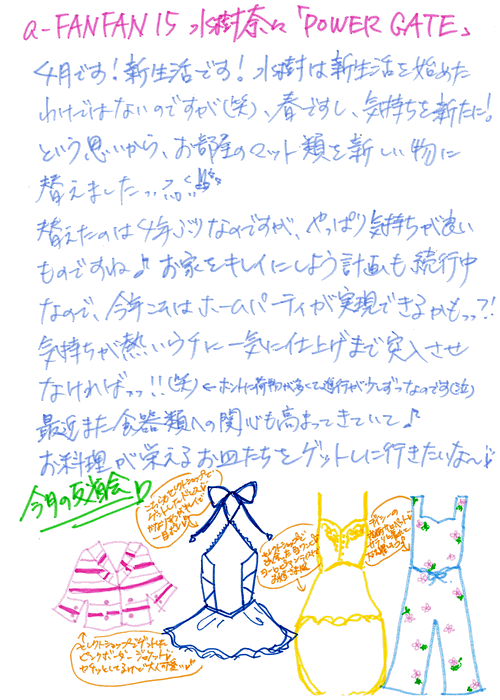 a-FANFAN 15 水樹奈々「POWER GATE」
4月です！新生活です！水樹は新生活を始めた
わけではないのですが(笑)、春ですし、気持ちを新たに！
という思いから、お部屋のマット類を新しい物に
替えましたっ
替えたのは4年ぶりなのですが、やっぱり気持ちが良い
ものですね♪お家をキレイにしよう計画も続行中
なので、今年こそはホームパーティが実現できるかもっっ?!
気持ちが熱いウチに一気に仕上げまで突入させ
なければっっ!!(笑)←ホントに荷物が多くて進行が少しずつなのです(泣)
最近また食器類への関心も高まってきていて♪
お料理が栄えるお皿たちをゲットしに行きたいな〜
今月の反省会
セレクトショップでゲットした
ピンクボーダージャケット